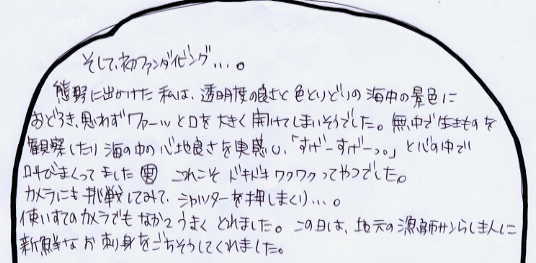 そして、初ファンダイビング…。
熊野に出かけた私は、透明度の良さと色とりどりの海中の景色に
おどろき、思わずワァーッと口を大きく開けてしまいそうでした。無中で生きものを
観察したり海の中の心地良さを実感し、「すげーすげーっ。」と心の中で
叫びまくってました これこそドキドキワクワクってやつでした。
カメラにも挑戦してみて、シャッターを押しまくり…。
使いすてのカメラでもなかなかうまくとれました。この日は、地元の漁師さんらしき人に
新鮮なお刺身をごちそうしてくれました。